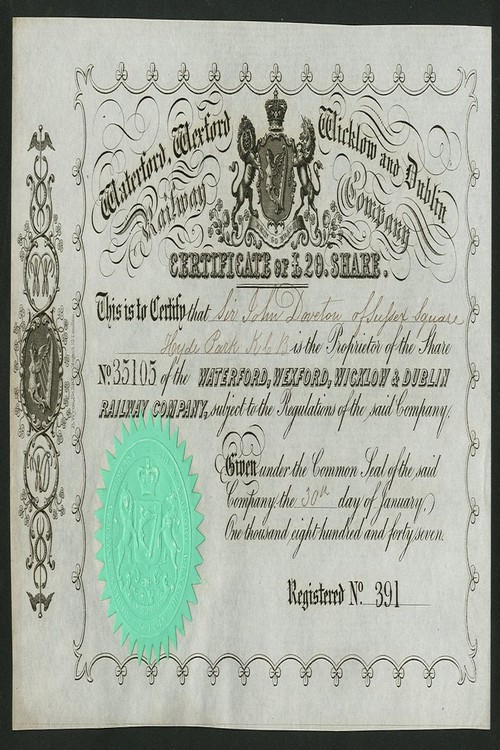 Waterford, Wexford Wicklow and Dublin
Railway Company
CERTIFICATE OF £20. SHARE.
This is to Certify that Sir John Doveton of Sussex Square
Hyde Park K C B is the Proprietor of the Share
No. 35105 of the WATERFORD, WEXFORD, WICKLOW & DUBLIN
RAILWAY COMPANY, subject to the Regulations of the said Company.
Given under the Common Seal of the said
Company the 30th day of January,
One thousand eight hundred and forty seven.
Registered No. 391